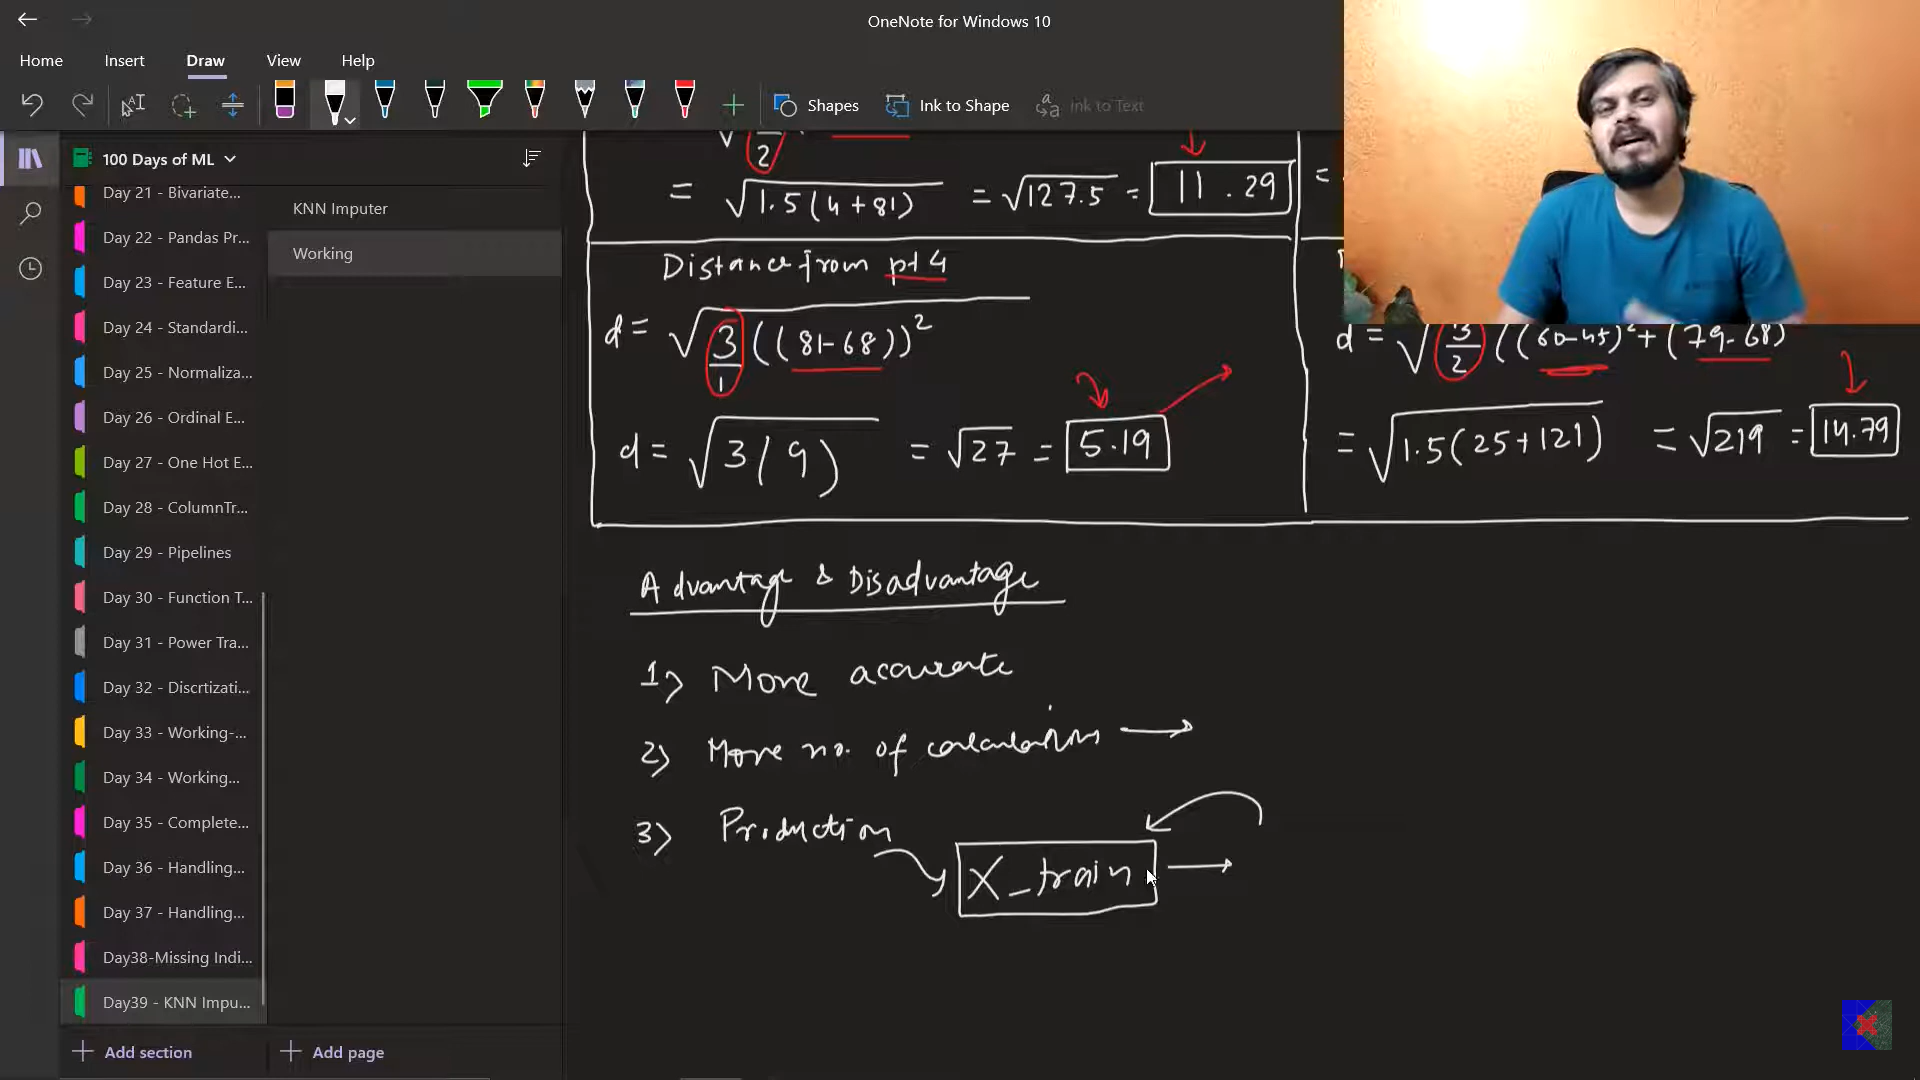 OneNote for Windows 10
Home Insert Draw View Help
Shapes Ink to Shape Ink to Text
100 Days of ML
Day 21 - Bivariate...
Day 22 - Pandas Pr...
Day 23 - Feature E...
Day 24 - Standardi...
Day 25 - Normaliza...
Day 26 - Ordinal E...
Day 27 - One Hot E...
Day 28 - ColumnTr...
Day 29 - Pipelines
Day 30 - Function T...
Day 31 - Power Tra...
Day 32 - Discrtizati...
Day 33 - Working-...
Day 34 - Working...
Day 35 - Complete...
Day 36 - Handling...
Day 37 - Handling...
Day38-Missing Indi...
Day39 - KNN Impu...
Add section
KNN Imputer
Working
Add page
2
= √1.5(4+81) = √127.5 = 11.29 =
Distance from pt 4
d = √3/1((81-68))²
d = √3(9) = √27 = 5.19
d = √3/2((60-45)²+(79-68)
= √1.5(25+121) = √219 = 14.79
Advantage & Disadvantage
1) More accurate
2) More no. of calculations →
3) Production
X_train →